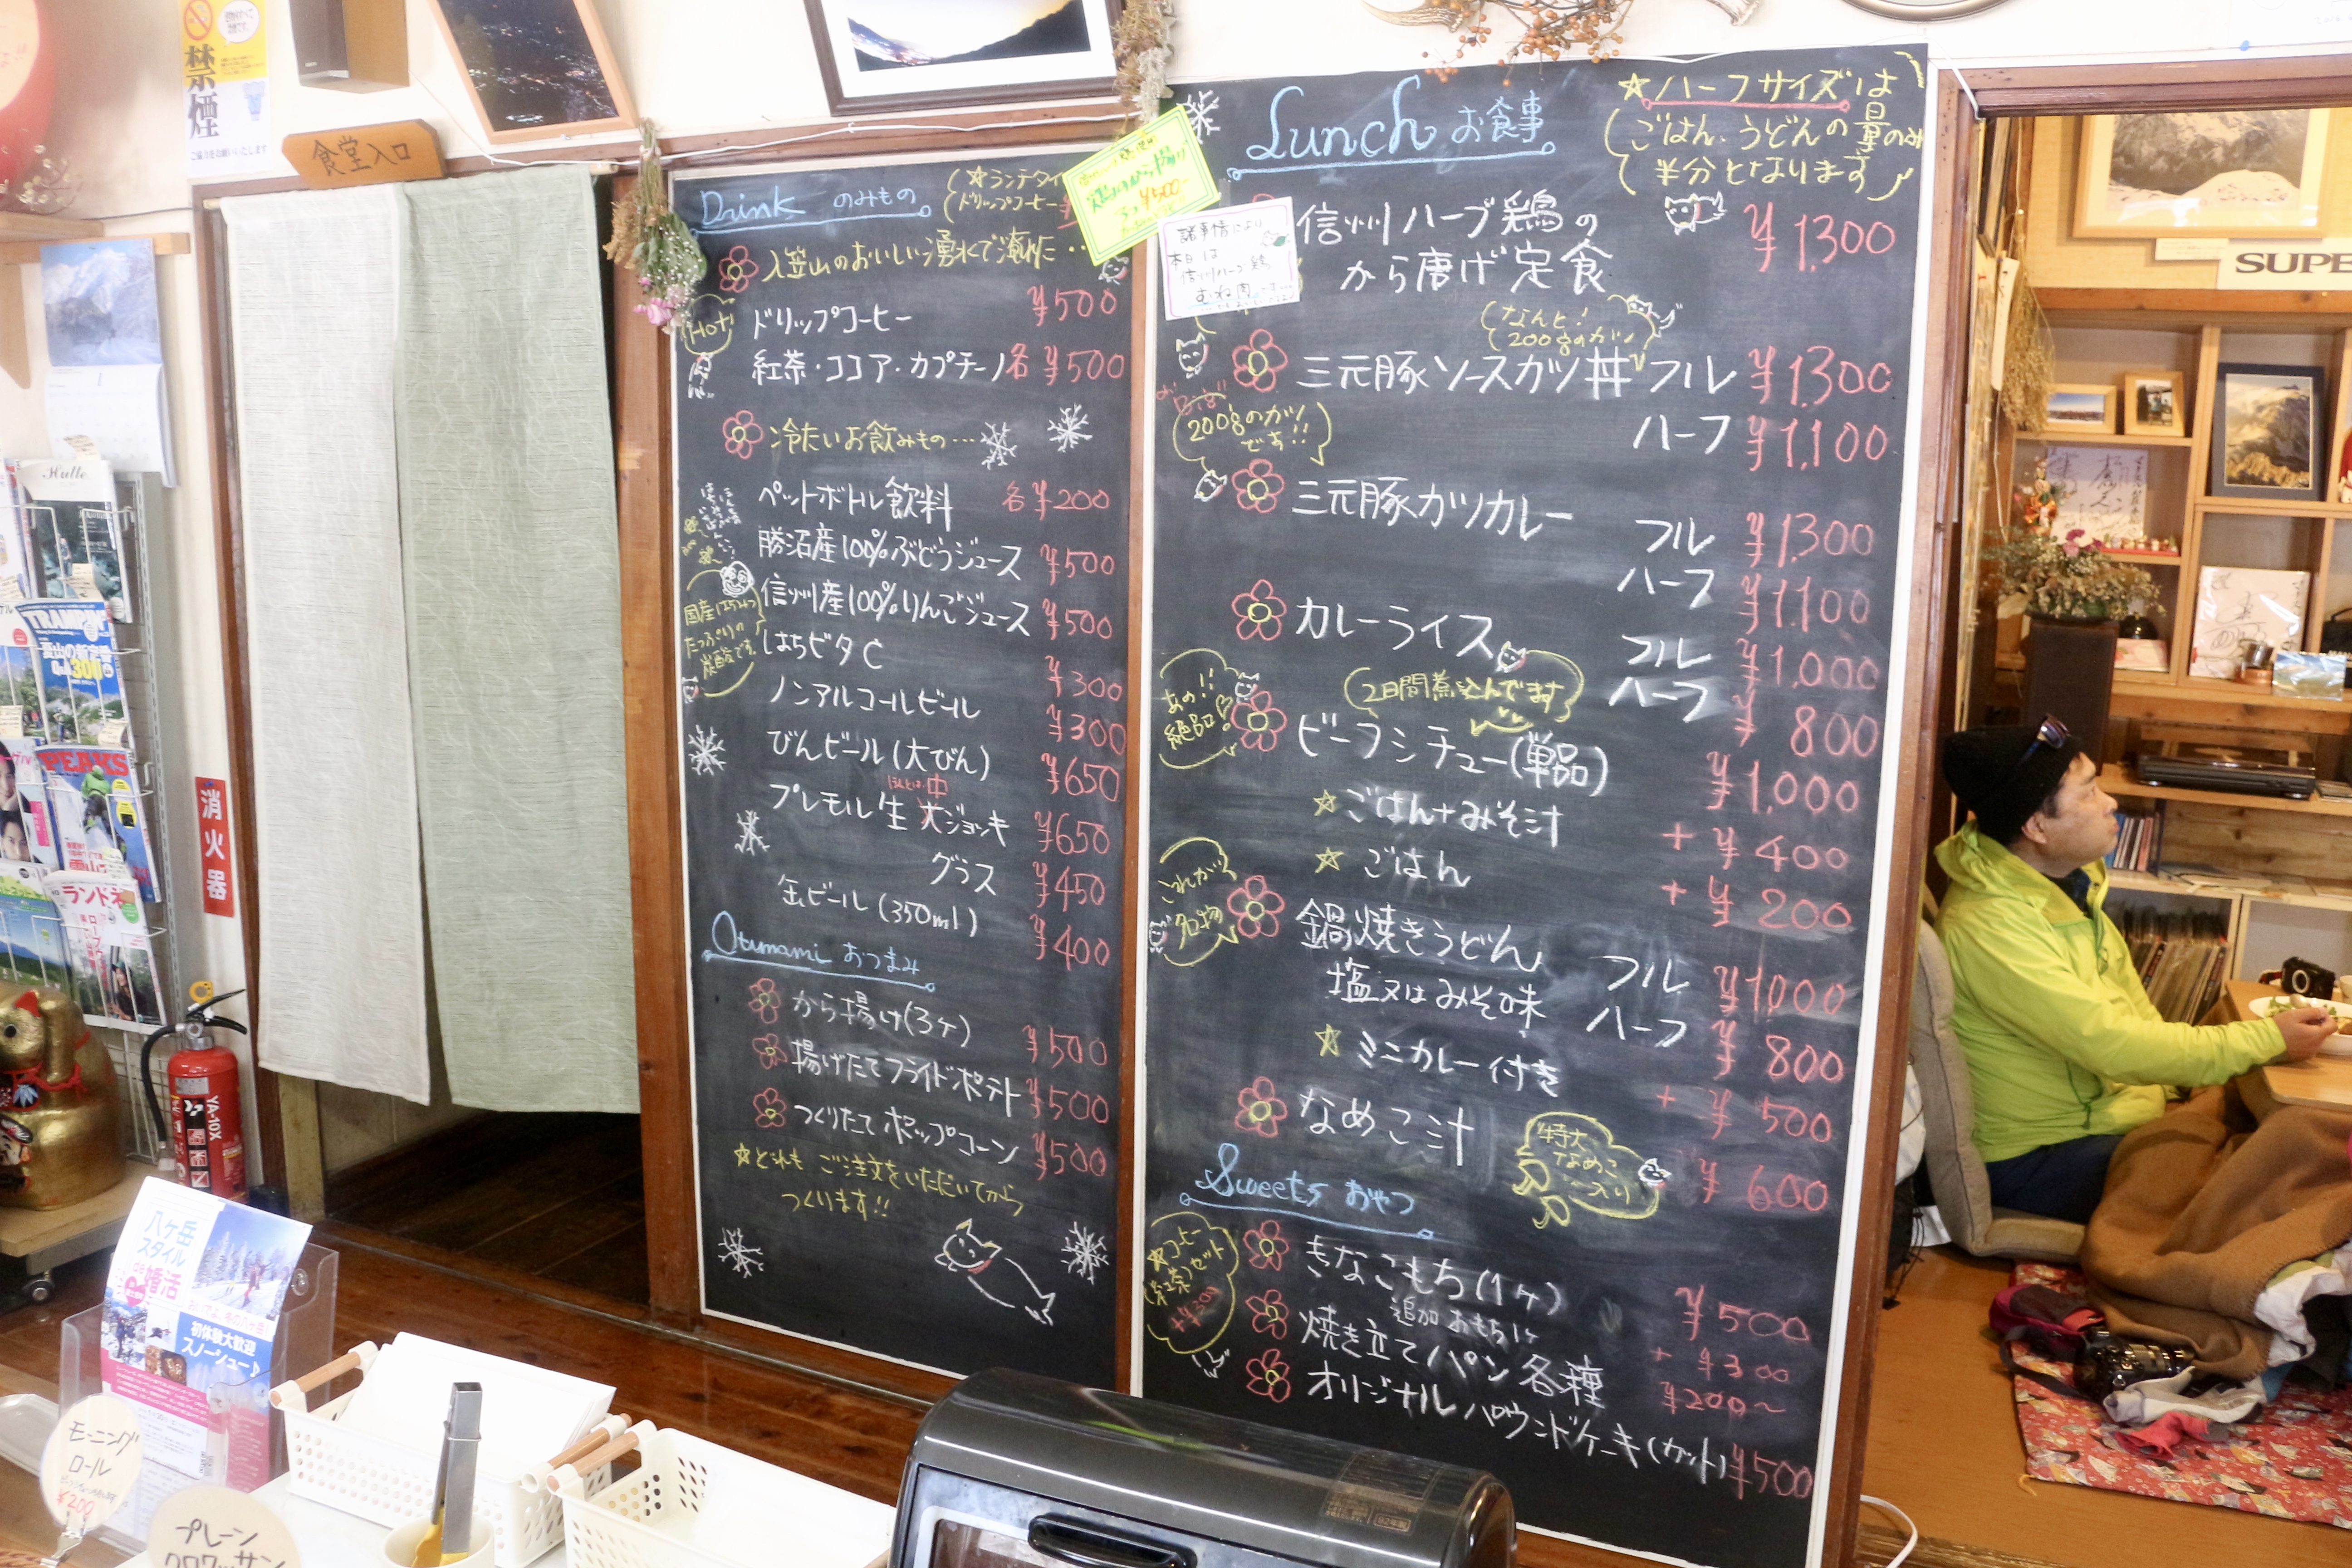 禁煙
ご協力をお願いいたします
食堂入口
Drink のみもの
ドリップコーヒー
入笠山のおいしい湧水で淹れた…
HOT!
ドリップコーヒー ¥500
紅茶・ココア・カプチーノ 各 ¥500
冷たいお飲みもの…
ペットボトル飲料 各 ¥200
勝沼産100%ぶどうジュース ¥500
信州産100%りんごジュース ¥500
国産はちみつ
たっぷりの
炭酸です。
はちビタC ¥300
ノンアルコールビール ¥300
びんビール(大びん) ¥650
中
プレモル生 大ジョッキ ¥650
グラス ¥450
缶ビール(350ml) ¥400
Otumami おつまみ
から揚げ(3ヶ) ¥500
揚げたてフライドポテト ¥500
つくりたてポップコーン ¥500
☆どれも ご注文をいただいてから
つくります!!
¥500
諸事情により
本日は
信州ハーブ鶏
むね肉
Lunch お食事
☆ハーフサイズは
ごはん、うどんの量のみ
半分となります
信州ハーブ鶏の
から唐げ定食 ¥1,300
なんと!
200gのカツ
三元豚ソースカツ丼 フル ¥1,300
ハーフ ¥1,100
200gのカツ
です!!
三元豚カツカレー フル ¥1,300
ハーフ ¥1,100
カレーライス フル ¥1,000
ハーフ ¥800
2日間煮込んでます
あの!!
絶品
ビーフシチュー(単品) ¥1,000
☆ごはん+みそ汁 +¥400
☆ごはん +¥200
これが
名物
鍋焼きうどん フル ¥1000
塩又はみそ味 ハーフ ¥800
☆ミニカレー付き +¥500
なめこ汁 ¥600
特大
なめこ
入り
Sweets おやつ
☆コーヒー
(紅茶)セット
+¥300
きなこもち(1ヶ) ¥500
追加おもち1ヶ +¥300
焼き立てパン各種 ¥200〜
オリジナルパウンドケーキ(カット) ¥500
SUPE
Hutte
TRAMPIN'
夏山の新定番
300
PEAKS
ランドネ
消火器
YA-10X
八ヶ岳
スタイル
婚活
初体験大歓迎
スノーシュー♪
モーニング
ロール
¥200
プレーン
クロワッサン